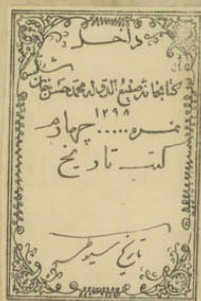 داخل
شد
کتابخانه صنیع الدوله محمد حسن خان
۱۲۹۸
نمره ..... چهارم
کتب تاریخ
تاریخ سیوطی